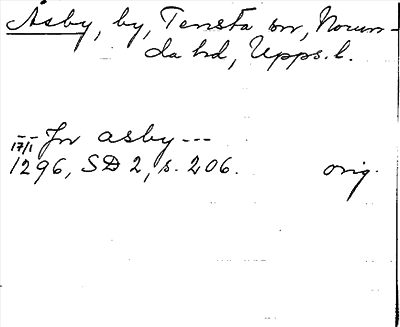 Åsby, by, Tensta sn, Norun-
da hd, Upps. l.
-- jn asby ---
17/1
1296, SD 2, s. 206. orig.